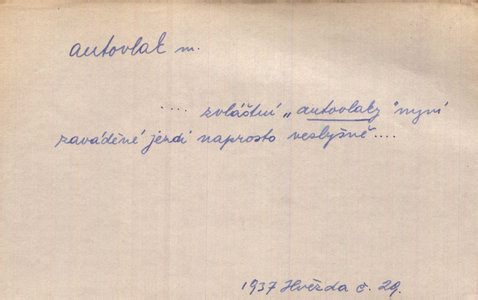 autovlak m.
.... zvláštní „autovlaky“ nyní
zaváděné jezdí naprosto neslyšně....
1937 Hvězda č. 29.